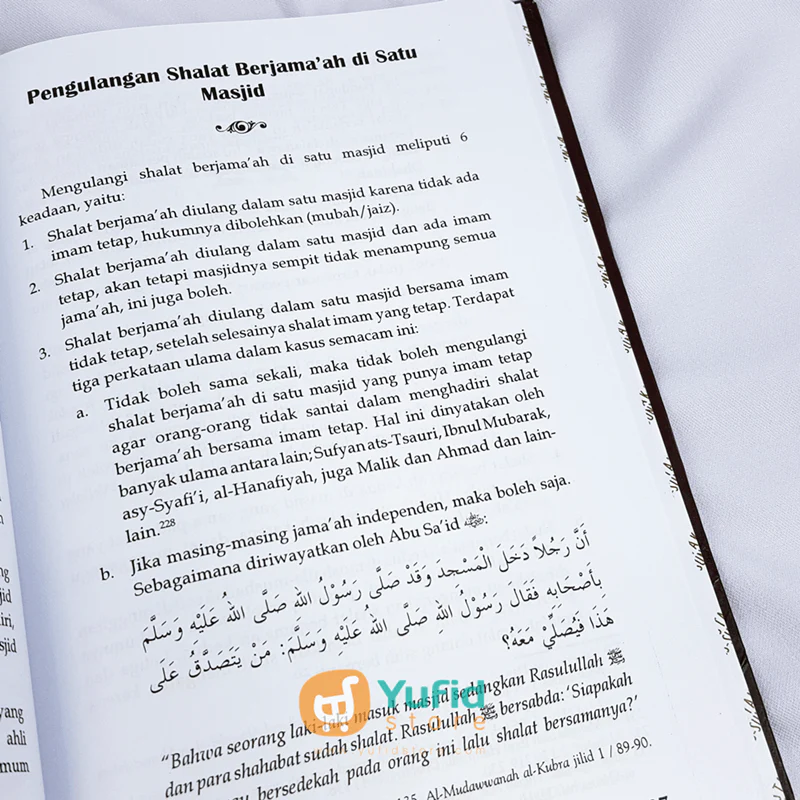 Pengulangan Shalat Berjama'ah di Satu
Masjid
Mengulangi shalat berjama'ah di satu masjid meliputi 6
keadaan, yaitu:
1. Shalat berjama'ah diulang dalam satu masjid karena tidak ada
imam tetap, hukumnya dibolehkan (mubah/jaiz).
2. Shalat berjama'ah diulang dalam satu masjid dan ada imam
tetap, akan tetapi masjidnya sempit tidak menampung semua
jama'ah, ini juga boleh.
3. Shalat berjama'ah diulang dalam satu masjid bersama imam
tidak tetap, setelah selesainya shalat imam yang tetap. Terdapat
tiga perkataan ulama dalam kasus semacam ini:
a. Tidak boleh sama sekali, maka tidak boleh mengulangi
shalat berjama'ah di satu masjid yang punya imam tetap
agar orang-orang tidak santai dalam menghadiri shalat
berjama'ah bersama imam tetap. Hal ini dinyatakan oleh
banyak ulama antara lain; Sufyan ats-Tsauri, Ibnul Mubarak,
asy-Syafi'i, al-Hanafiyah, juga Malik dan Ahmad dan lain-
lain.228
b. Jika masing-masing jama'ah independen, maka boleh saja.
Sebagaimana diriwayatkan oleh Abu Sa'id :
أَنَّ رَجُلاً دَخَلَ الْمَسْجِدَ وَقَدْ صَلَّى رَسُوْلُ اللهِ صَلَّى اللهُ عَلَيْهِ وَسَلَّمَ
بِأَصْحَابِهِ فَقَالَ رَسُوْلُ اللهِ صَلَّى اللهُ عَلَيْهِ وَسَلَّمَ: مَنْ يَتَصَدَّقُ عَلَى
هَذَا فَيُصَلِّيْ مَعَهُ؟
"Bahwa seorang laki-laki masuk masjid sedangkan Rasulullah ﷺ
dan para shahabat sudah shalat. Rasulullah ﷺ bersabda: 'Siapakah
bersedekah pada orang ini lalu shalat bersamanya?'
Al-Mudawwanah al-Kubra jilid 1 / 89-90.
Yufid
store